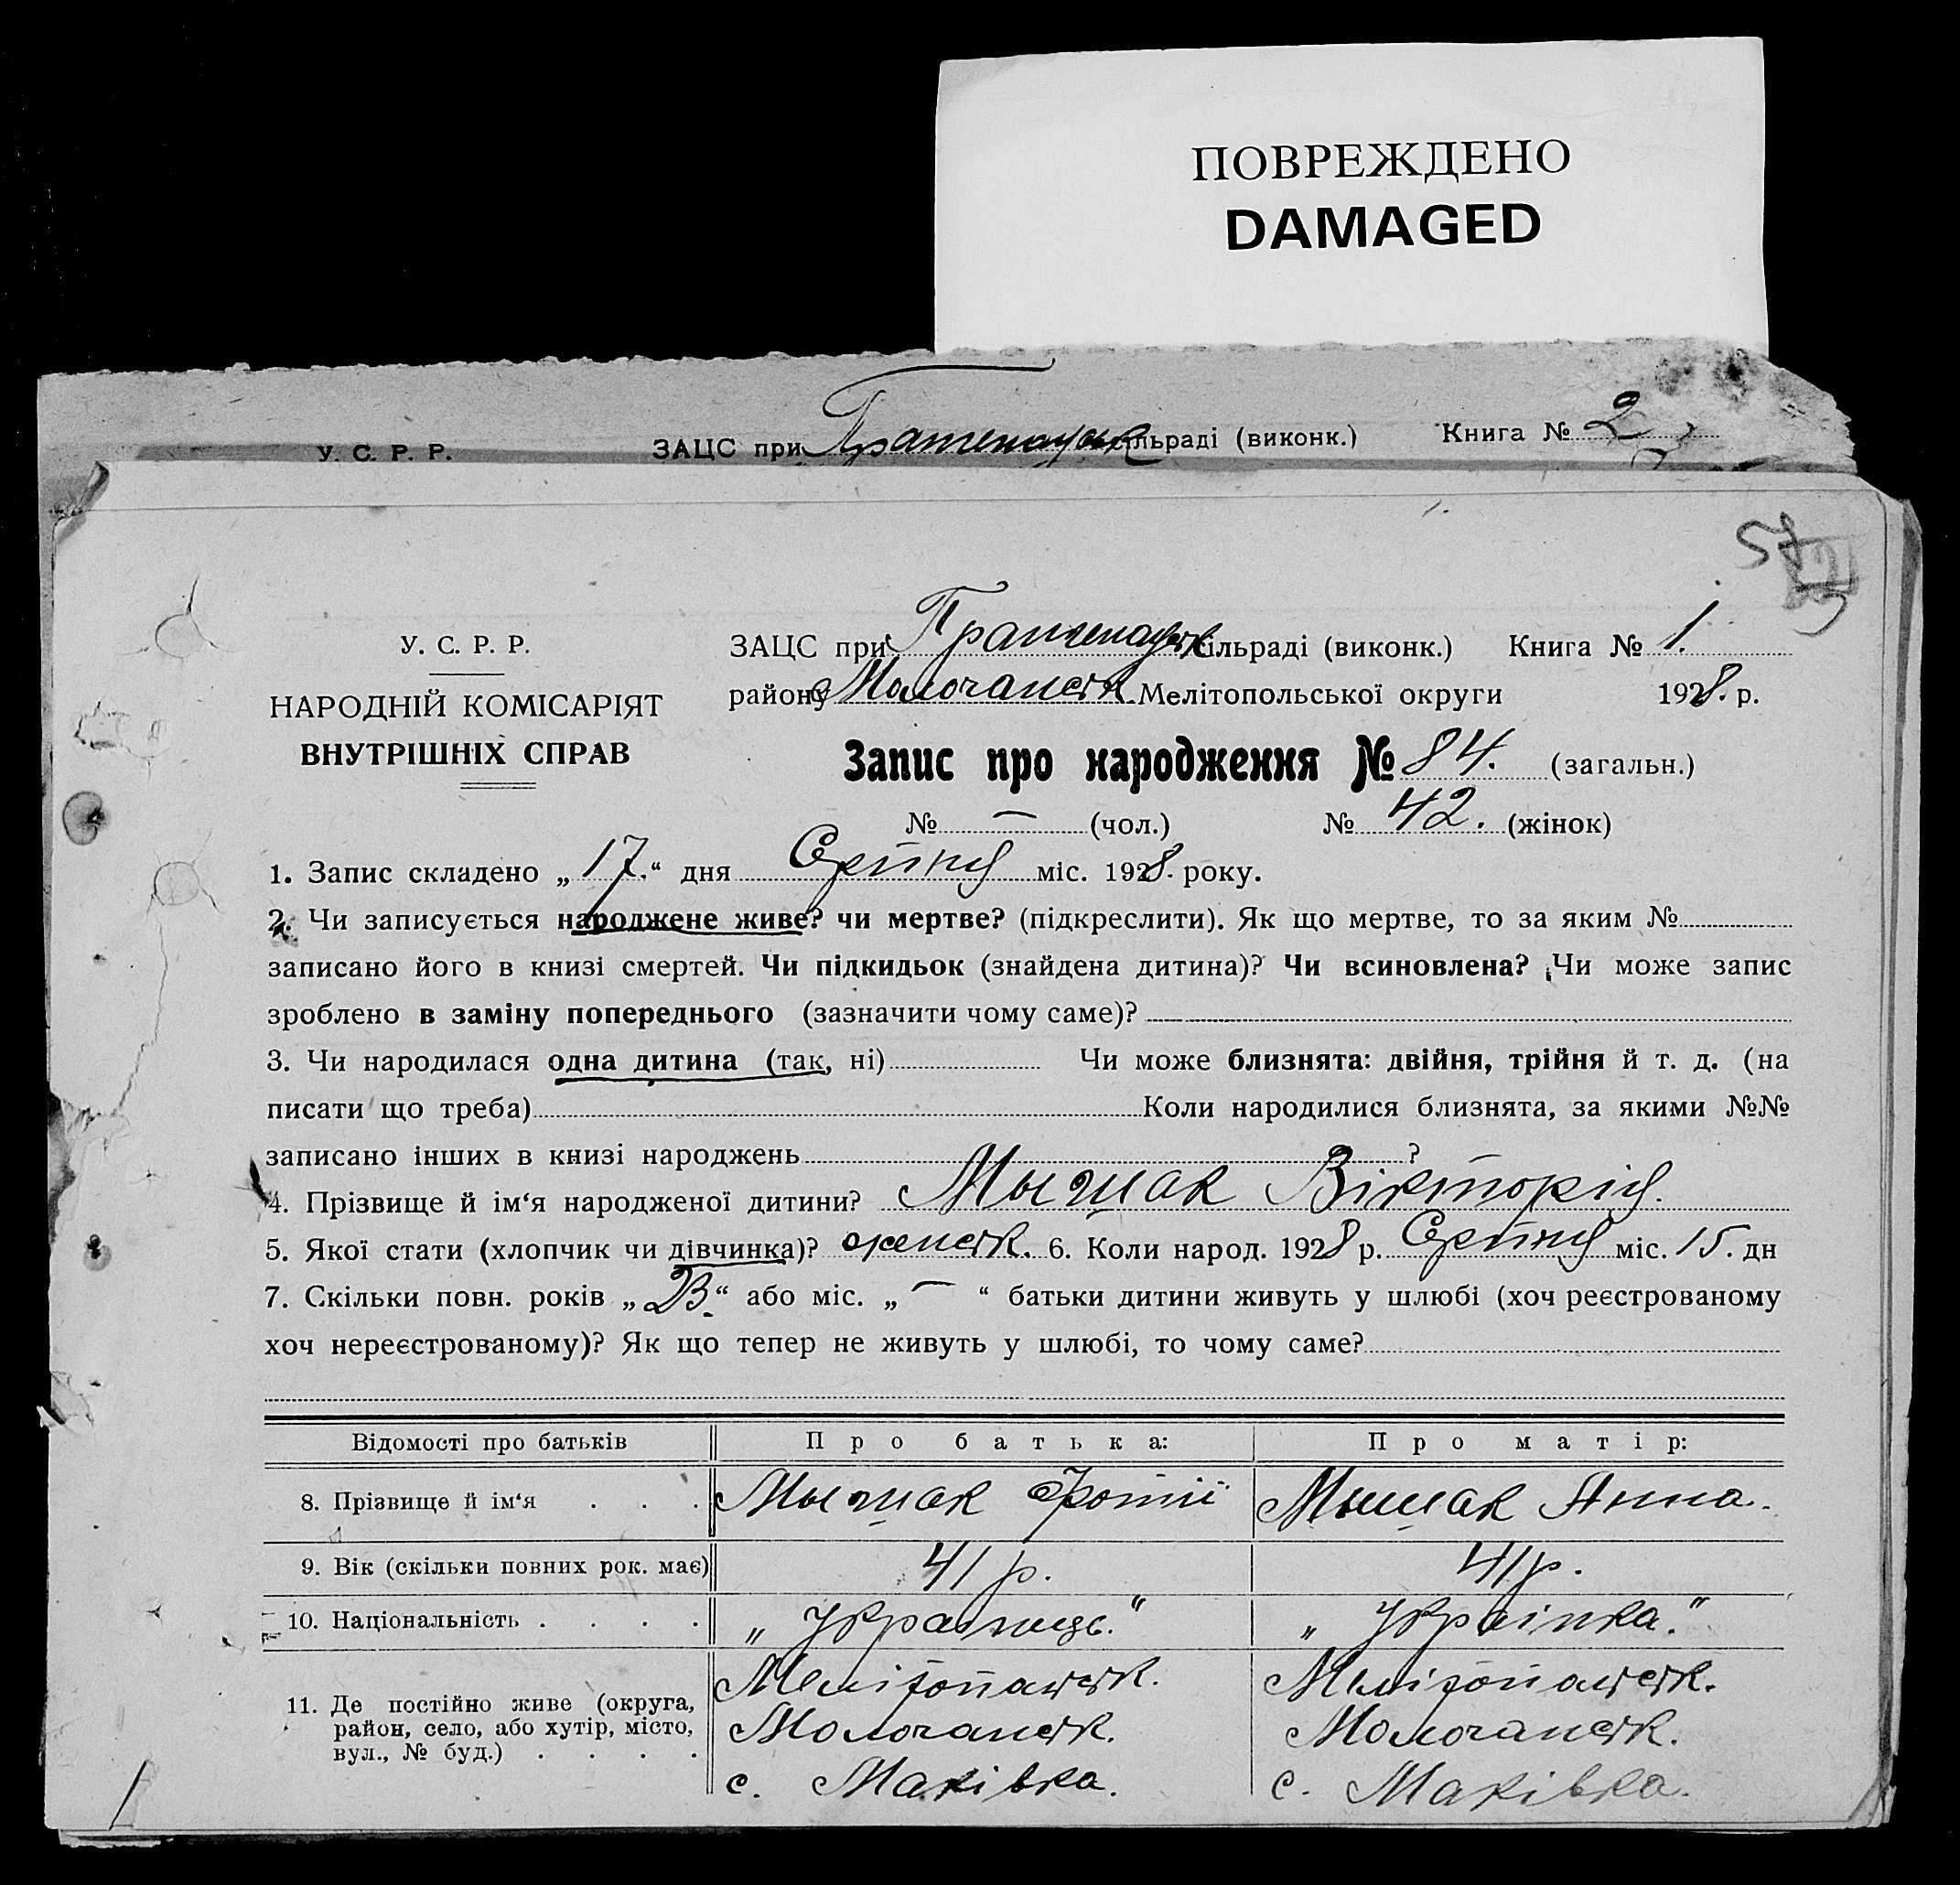 ПОВРЕЖДЕНО
DAMAGED
У. С. Р. Р. ЗАЦС при Пратенауськ сільраді (виконк.) Книга № 2
57
У. С. Р. Р.
НАРОДНІЙ КОМІСАРІЯТ
ВНУТРІШНІХ СПРАВ
ЗАЦС при Пратенауськ сільраді (виконк.) Книга № 1.
району Молочанськ. Мелітопольської округи 1928. р.
Запис про народження № 84. (загальн.)
№ — (чол.) № 42. (жінок)
1. Запис складено „17.“ дня Серпня міс. 1928. року.
2. Чи записується народжене живе? чи мертве? (підкреслити). Як що мертве, то за яким №
записано його в книзі смертей. Чи підкидьок (знайдена дитина)? Чи всиновлена? Чи може запис
зроблено в заміну попереднього (зазначити чому саме)?
3. Чи народилася одна дитина (так, ні) Чи може близнята: двійня, трійня й т. д. (на
писати що треба) Коли народилися близнята, за якими №№
записано інших в книзі народжень ?
4. Прізвище й ім‘я народженої дитини? Мышак Вікторія.
5. Якої стати (хлопчик чи дівчинка)? женськ. 6. Коли народ. 1928 р. Серпня міс. 15. дн
7. Скільки повн. років „ “ або міс. „ — “ батьки дитини живуть у шлюбі (хоч реєстрованому
хоч нереєстрованому)? Як що тепер не живуть у шлюбі, то чому саме?
Відомості про батьків Про батька: Про матір:
8. Прізвище й ім‘я . . . Мышак Фотій Мышак Анна.
9. Вік (скільки повних рок. має) 41 р. 41 р.
10. Національність . . . . „Українець.“ „Українка.“
11. Де постійно живе (округа, район, село, або хутір, місто, вул., № буд.) . . . .
Мелітопольськ. Мелітопольськ.
Молочанськ. Молочанськ.
с. Маківка. с. Маківка.